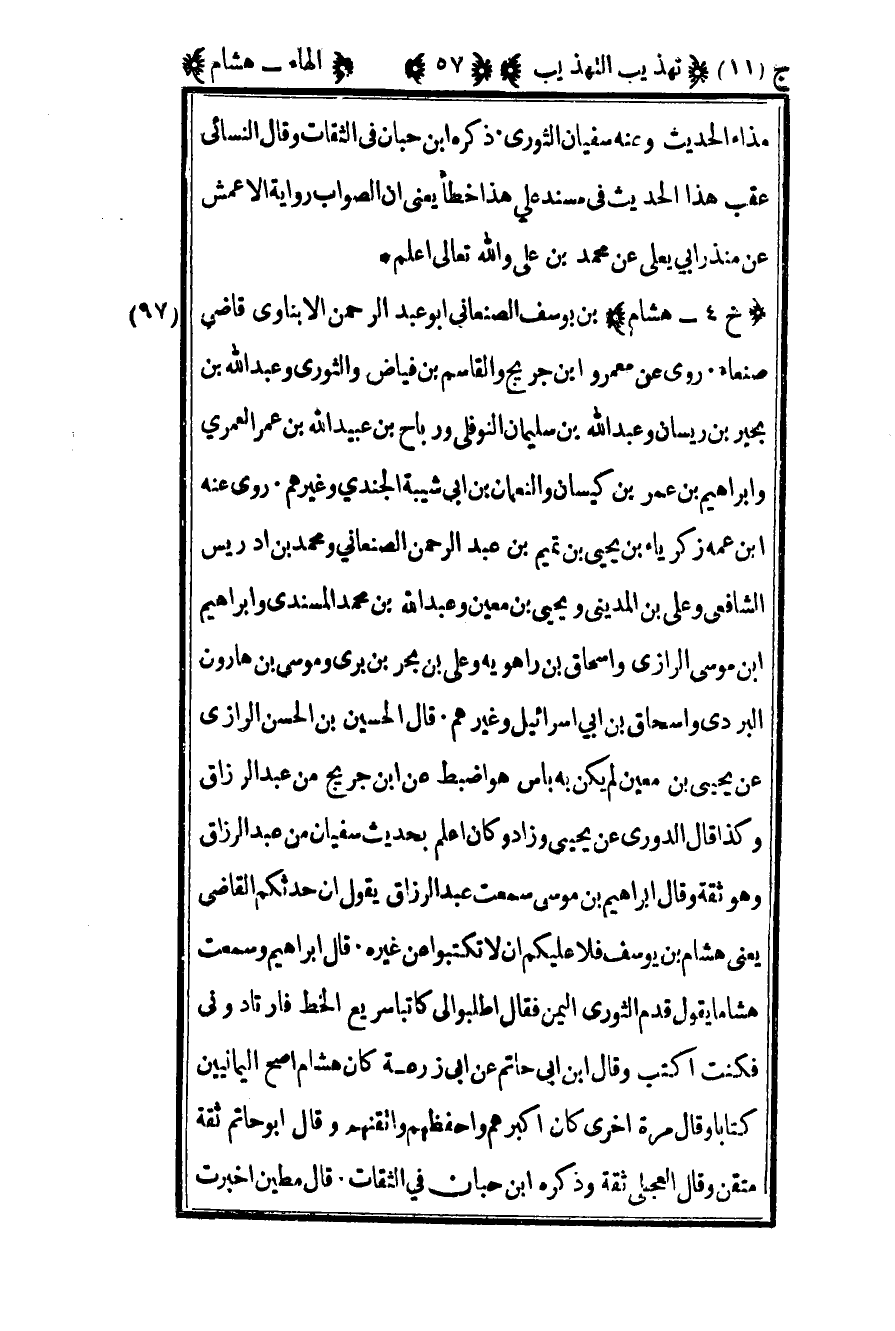 ج (١١) ﴿ تهذيب التهذيب ﴾ ﴿ ٥٧ ﴾ ﴿ الهاء ــ هشام ﴾
مذاء الحديث وعنه سفيان الثورى ٠ ذكره ابن حبان فى الثقات وقال النسائى
عقب هذا الحديث فى مسند علي هذا خطأ يعنى ان الصواب رواية الاعمش
عن منذر ابي يعلى عن محمد بن على والله تعالى اعلم *
﴿ خ ٤ ــ هشام ﴾ بن يوسف الصنعانى ابو عبد الرحمن الابناوى قاضي (٩٧)
صنعاء ٠ روى عن معمر و ابن جريج والقاسم بن فياض والثورى وعبدالله بن
بحير بن ريسان وعبدالله بن سليمان النوفلى ورباح بن عبيدالله بن عمر العمري
وابراهيم بن عمر بن كيسان والنعمان بن ابي شيبة الجندي وغيرهم ٠ روى عنه
ابن عمه زكرياء بن يحيى بن تميم بن عبد الرحمن الصنعاني ومحمد بن ادريس
الشافعى وعلى بن المدينى ويحيى بن معين وعبدالله بن محمد المسندى وابراهيم
ابن موسى الرازى واسحاق بن راهويه وعلى بن بحر بن برى وموسى بن هارون
البردى واسحاق بن ابي اسرائيل وغيرهم ٠ قال الحسين بن الحسن الرازى
عن يحيى بن معين لم يكن به باس هو اضبط عن ابن جريج من عبدالرزاق
وكذا قال الدورى عن يحيى وزاد وكان اعلم بحديث سفيان من عبدالرزاق
وهو ثقة وقال ابراهيم بن موسى سمعت عبدالرزاق يقول ان حدثكم القاضى
يعنى هشام بن يوسف فلا عليكم ان لا تكتبوا عن غيره ٠ قال ابراهيم وسمعت
هشاما يقول قدم الثورى اليمن فقال اطلبوا لى كاتبا سريع الخط فارتادونى
فكنت اكتب وقال ابن ابى حاتم عن ابى زرعة كان هشام اصح اليمانيين
كتابا وقال مرة اخرى كان اكبرهم واحفظهم واتقنهم وقال ابوحاتم ثقة
متقن وقال العجلى ثقة وذكره ابن حبان في الثقات ٠ قال مطين اخبرت